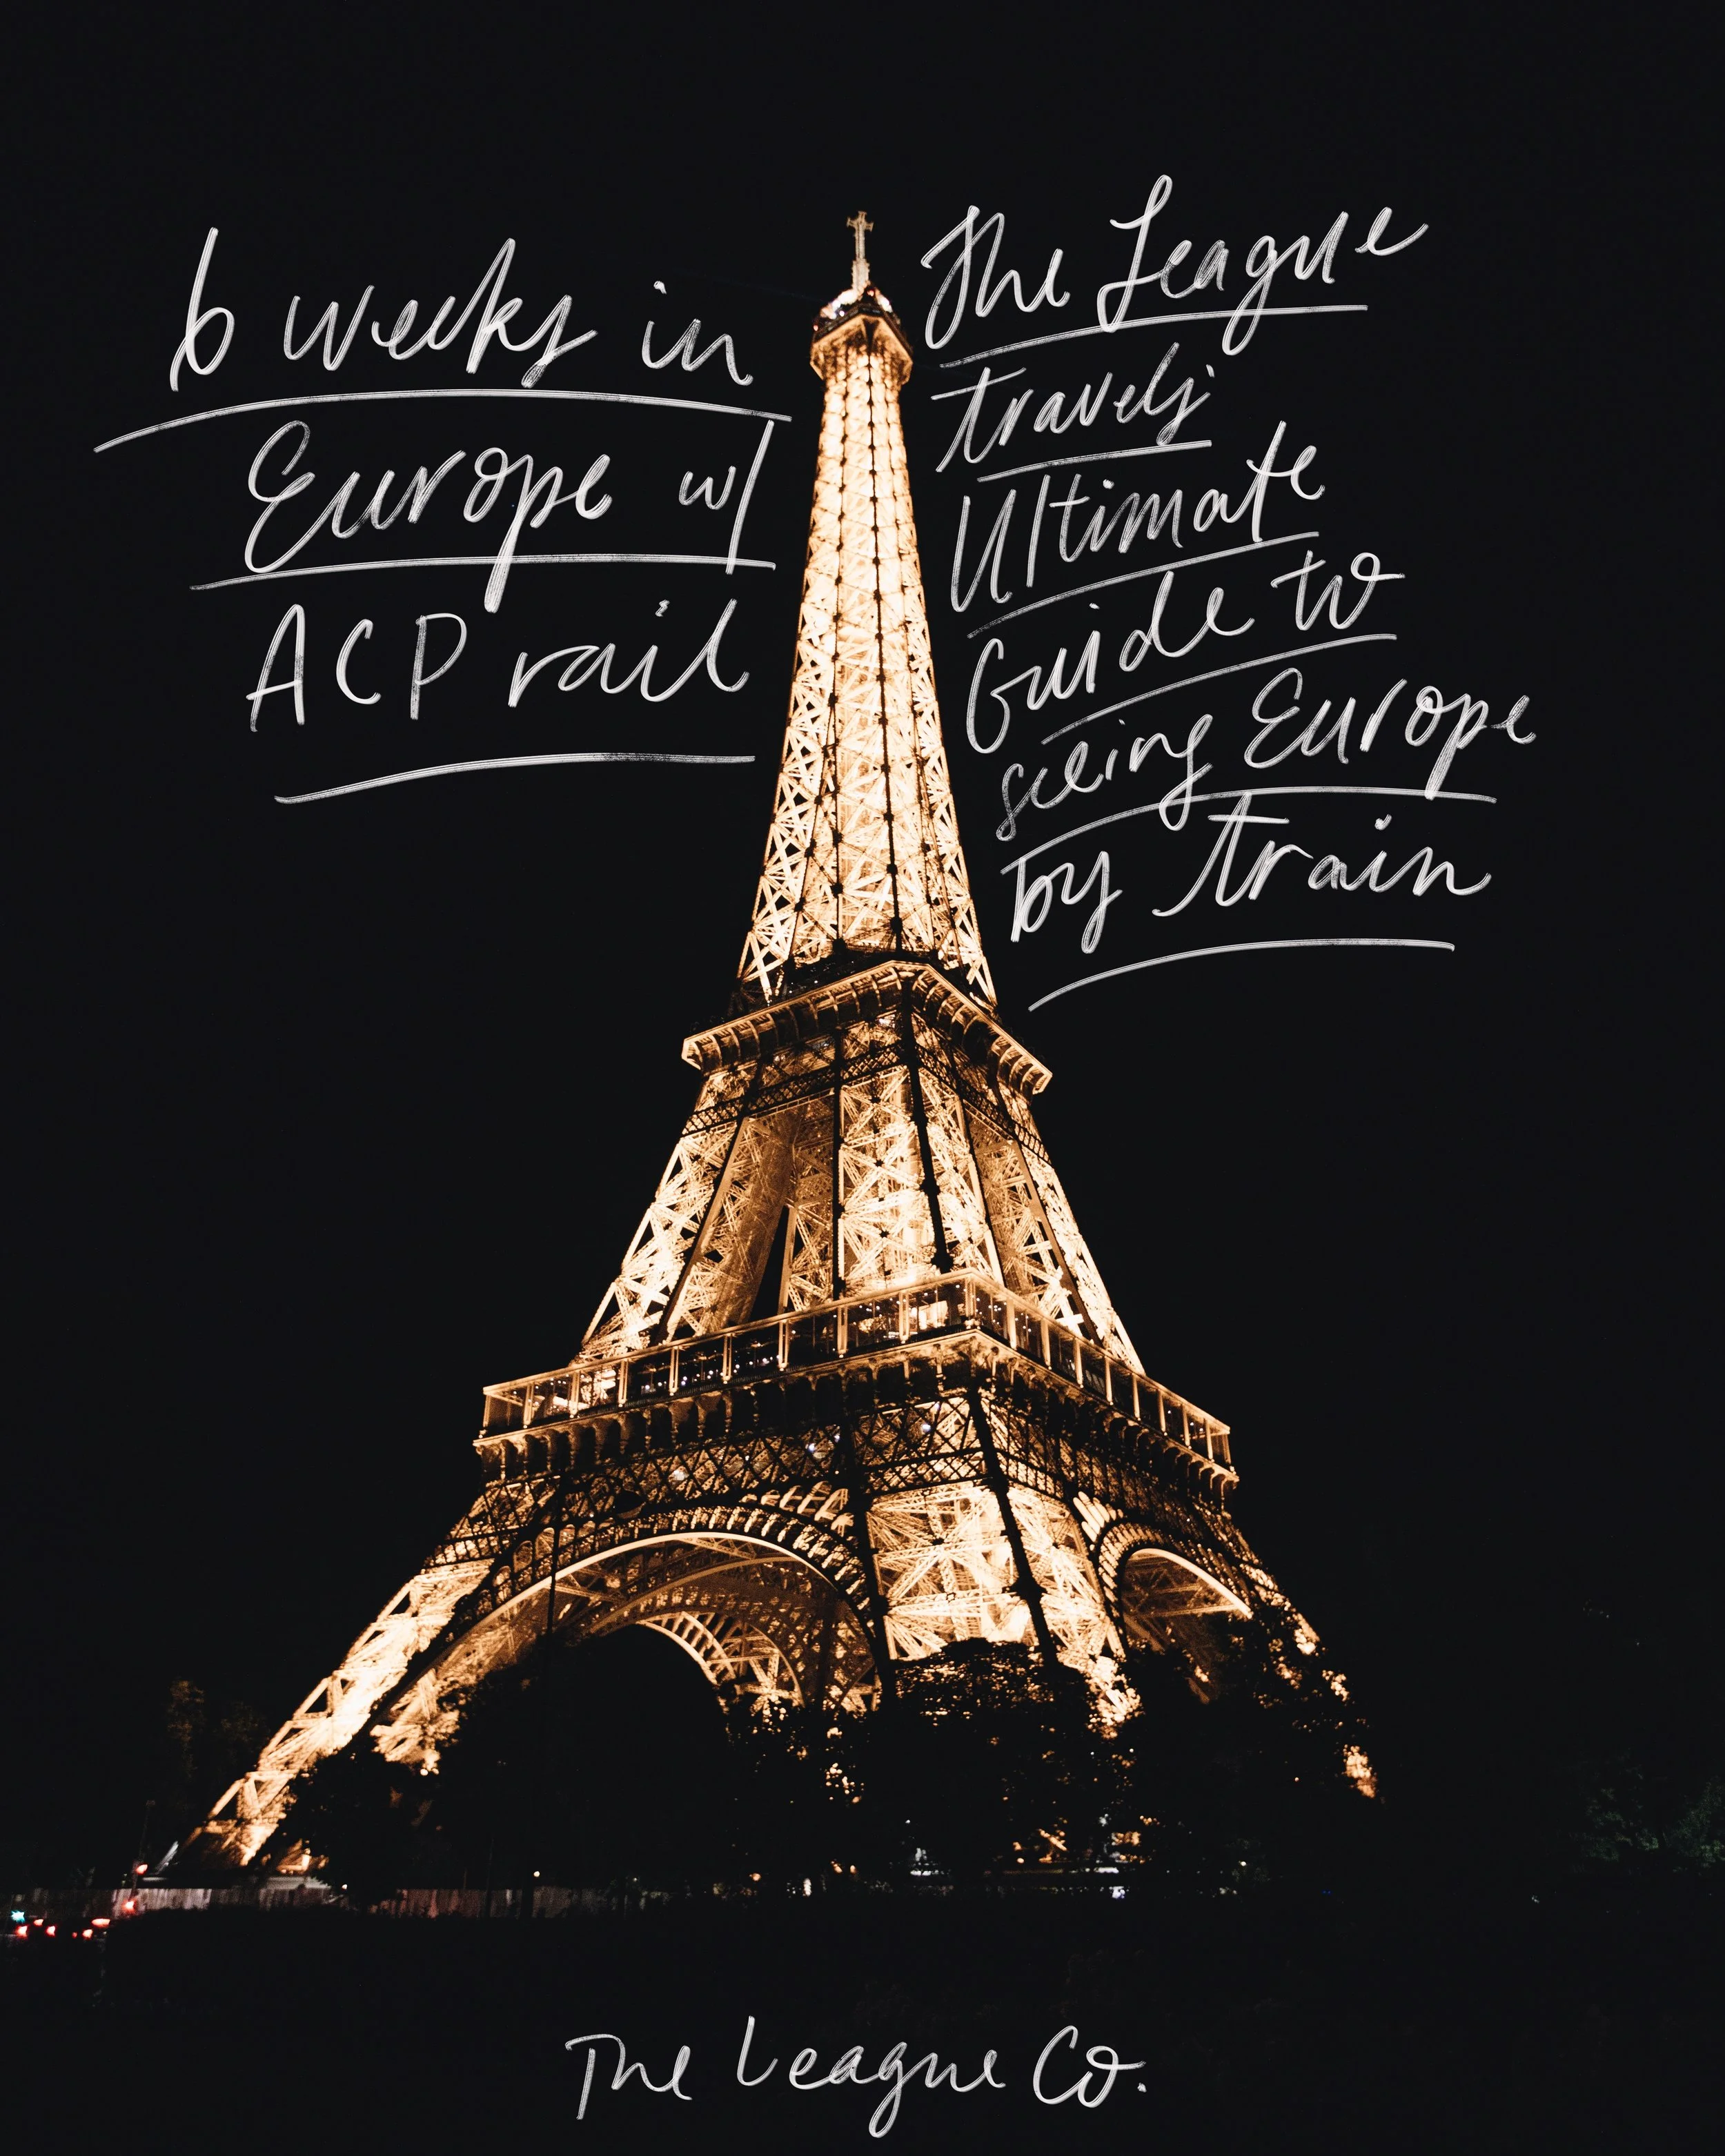 6 weeks in
Europe w/
ACP rail
The League
travels'
Ultimate
Guide to
seeing Europe
by train
The League Co.